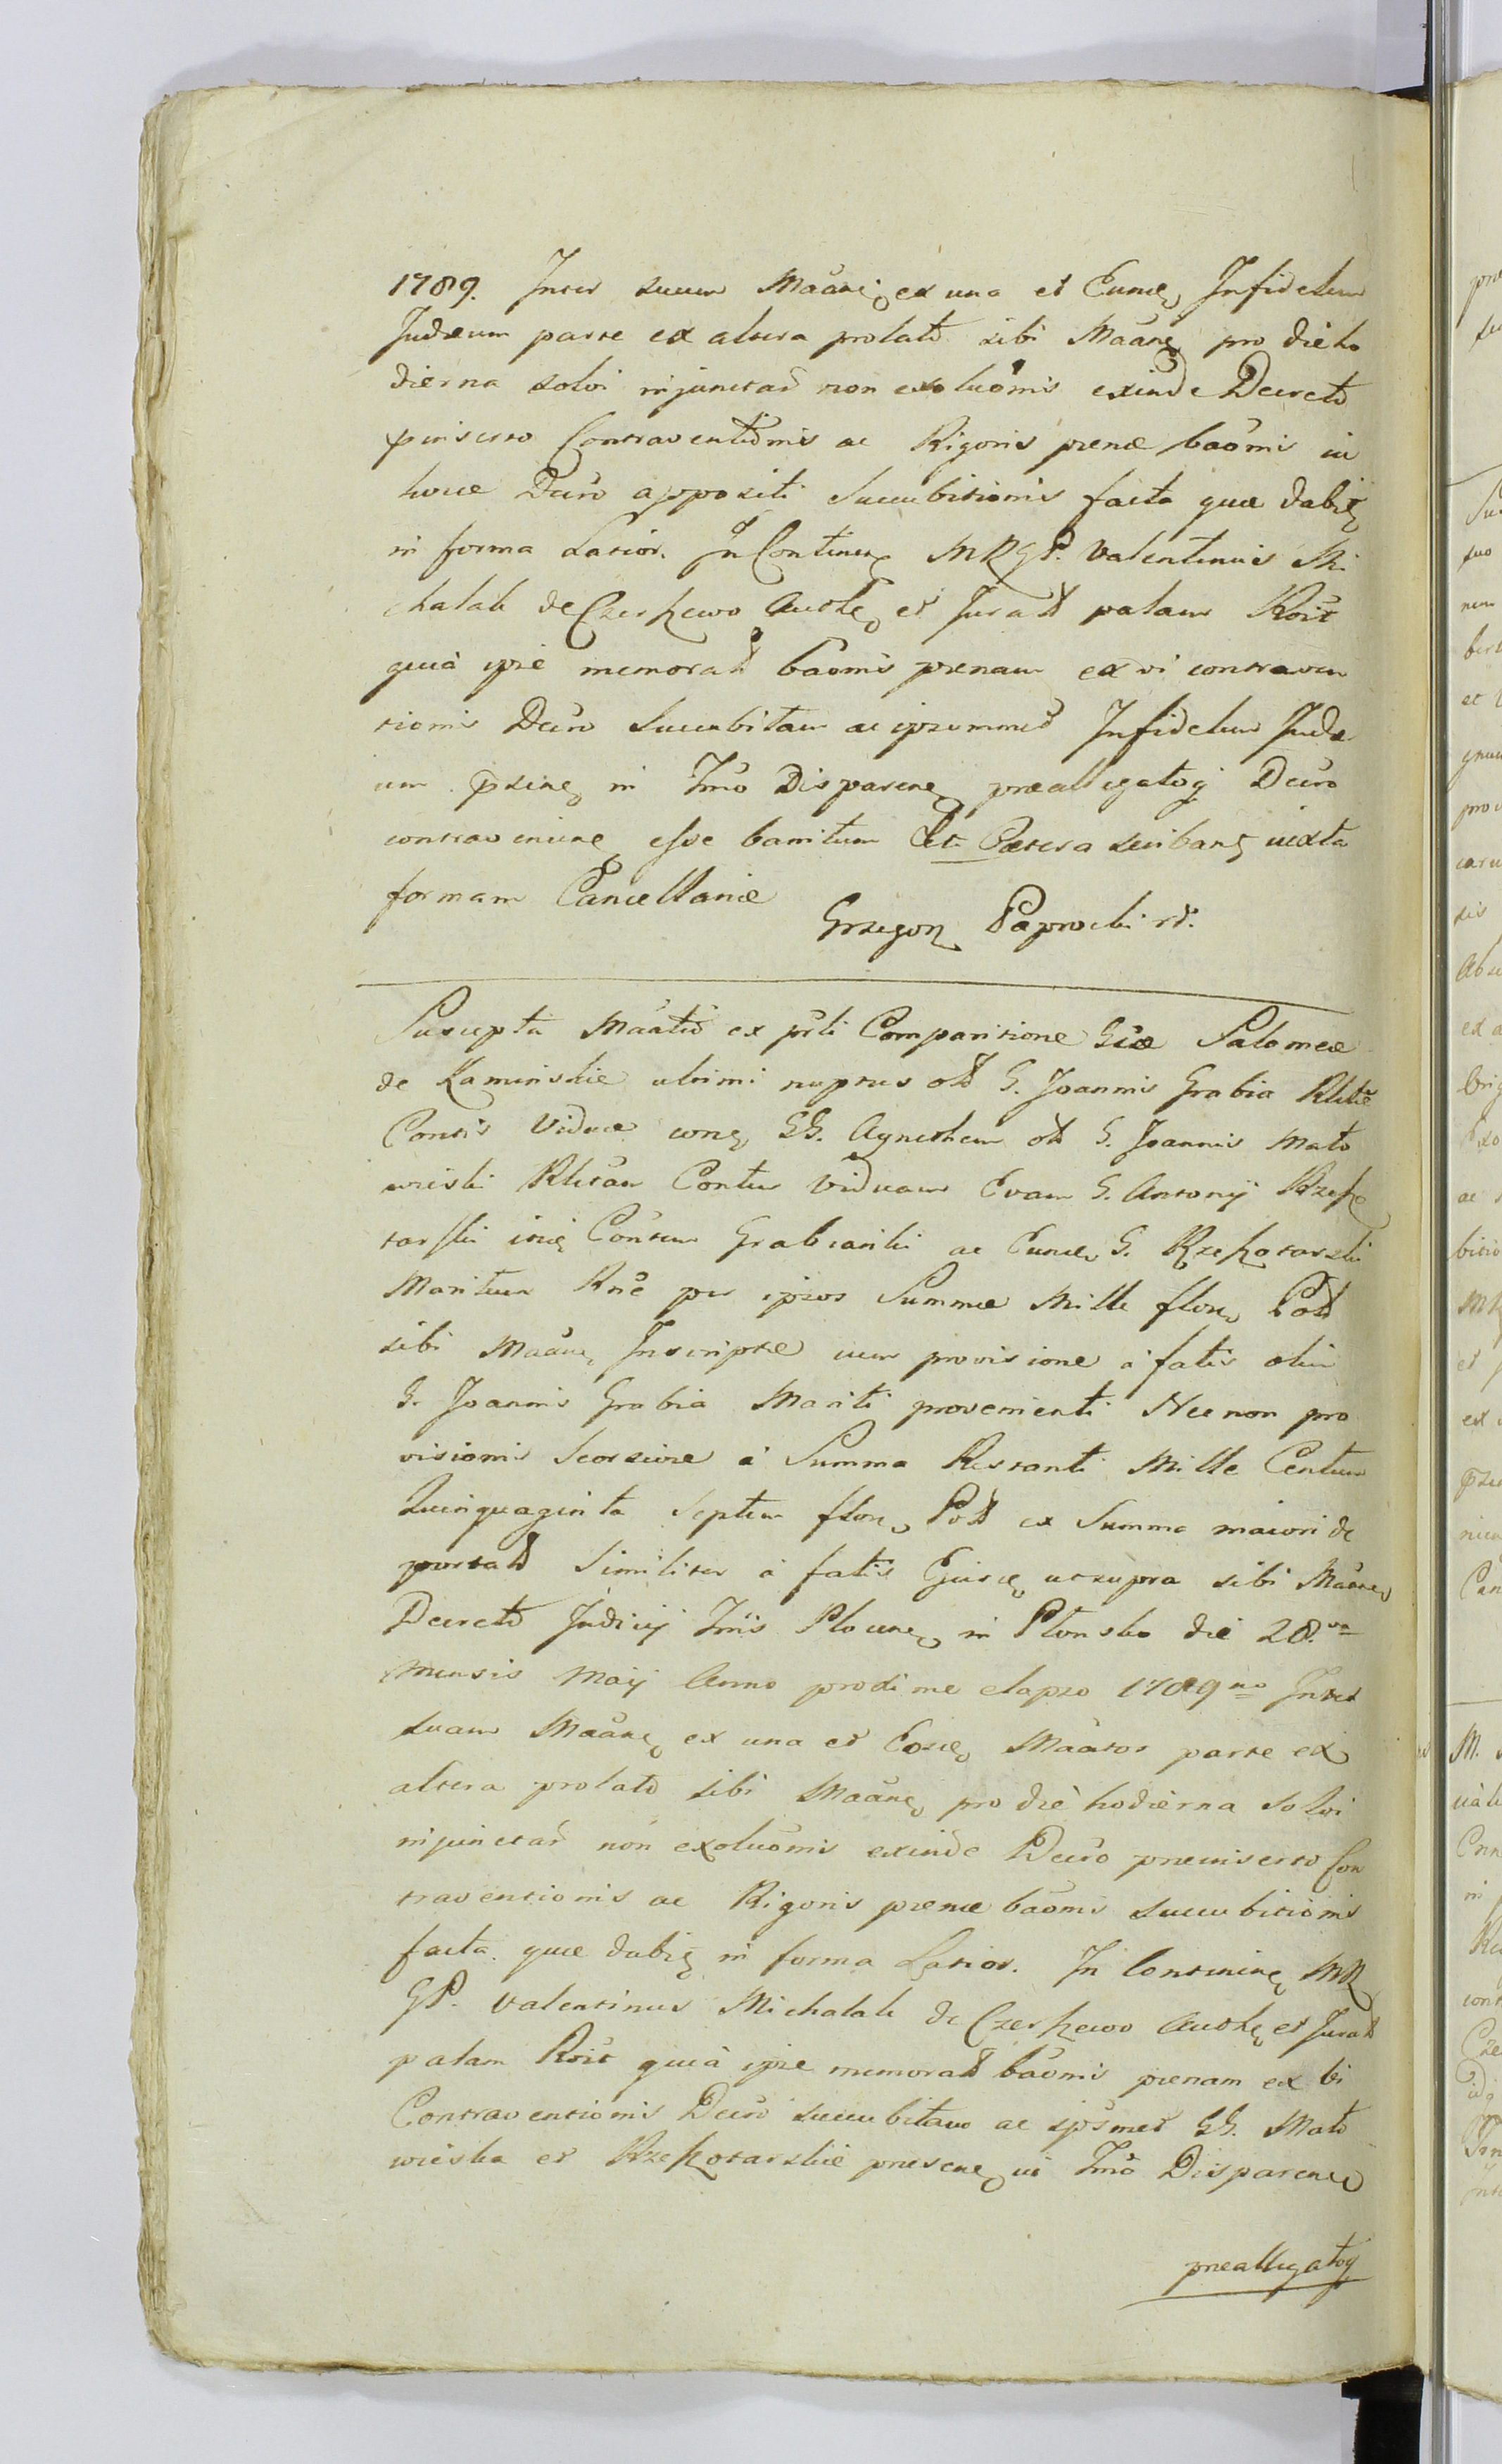 1789. Inter suum Maãnẽ ex una et Eund Infidelem
Judæum parte ex altera prolato sibi Maãnẽ pro die ho
dierna solvi injunctad non exoluõnis exinde Decreto
pinserto Contraventiõnis ac Rigoris pænæ baõnis in
hocce Decro appositi Succubitionis facta quæ dabit
in forma Latior. In Continen MRGP. Valentinus Mi
chalak de Czerkewo Authen et Jurat palam Roit
quià ipse memorat baõnis pænam ex vi contraven
tionis Decro Succubitam ac ipsummet Infidelem Judæ
um psenẽ in Trno Disparenẽ præallegatoq Decro
contravenienẽ esse banitum Et Cætera scribant iuxta
formam Cancellariæ
Grzegorz Paprocki rt.
Suscepta Maãtio ex prti Comparitione Gsæ Salomeæ
de Kaminskie ultimi nuptus olt G. Joannis Grabia Rlitæ
Contis Viduæ conẽ GG. Agnethem olt G. Joannis Mato
wieski Rlitam Contem Viduam Evam G. Antonij Rzeko
tarski inẽ Contem Grabianki ac Eund G. Rzekotarski
Maritum Rnẽ per ipsos Summæ Mille flor Polt
sibi Maãnẽ Inscriptæ cum provisione à fatis olim
G. Joannis Grabia Mariti provenienti Nec non pro
visionis Seorsive à Summa Restanti Mille Centum
Quinquaginta Septem flor Polt ex Summa maiori de
portat Similiter à fatis Ejusd ut supra sibi Maãnẽ
Decreto Judicij Tris Plocen in Plonsko die 28.va
mensis Maij Anno proxime elapso 1789no Inter
suam Maãnẽ ex una et Eosd Maãtos parte ex
altera prolato sibi Maãnẽ pro die hodierna solvi
injunctad non exoluõnis exinde Decro præinserto Con
traventionis ac Rigoris pænæ baõnis succubitionis
facta quæ dabit in forma Latior. In Continenẽ MR
GP. Valentinus Michalak de Czerkewo Authẽ et Jurat
palam Roit quià ipse memorat baõnis pænam ex vi
Contraventionis Decro succubitam ac ipsmet GG. Mato
wieska et Rzekotarskie præsenẽ in Trno Disparenẽ
præallegatoq